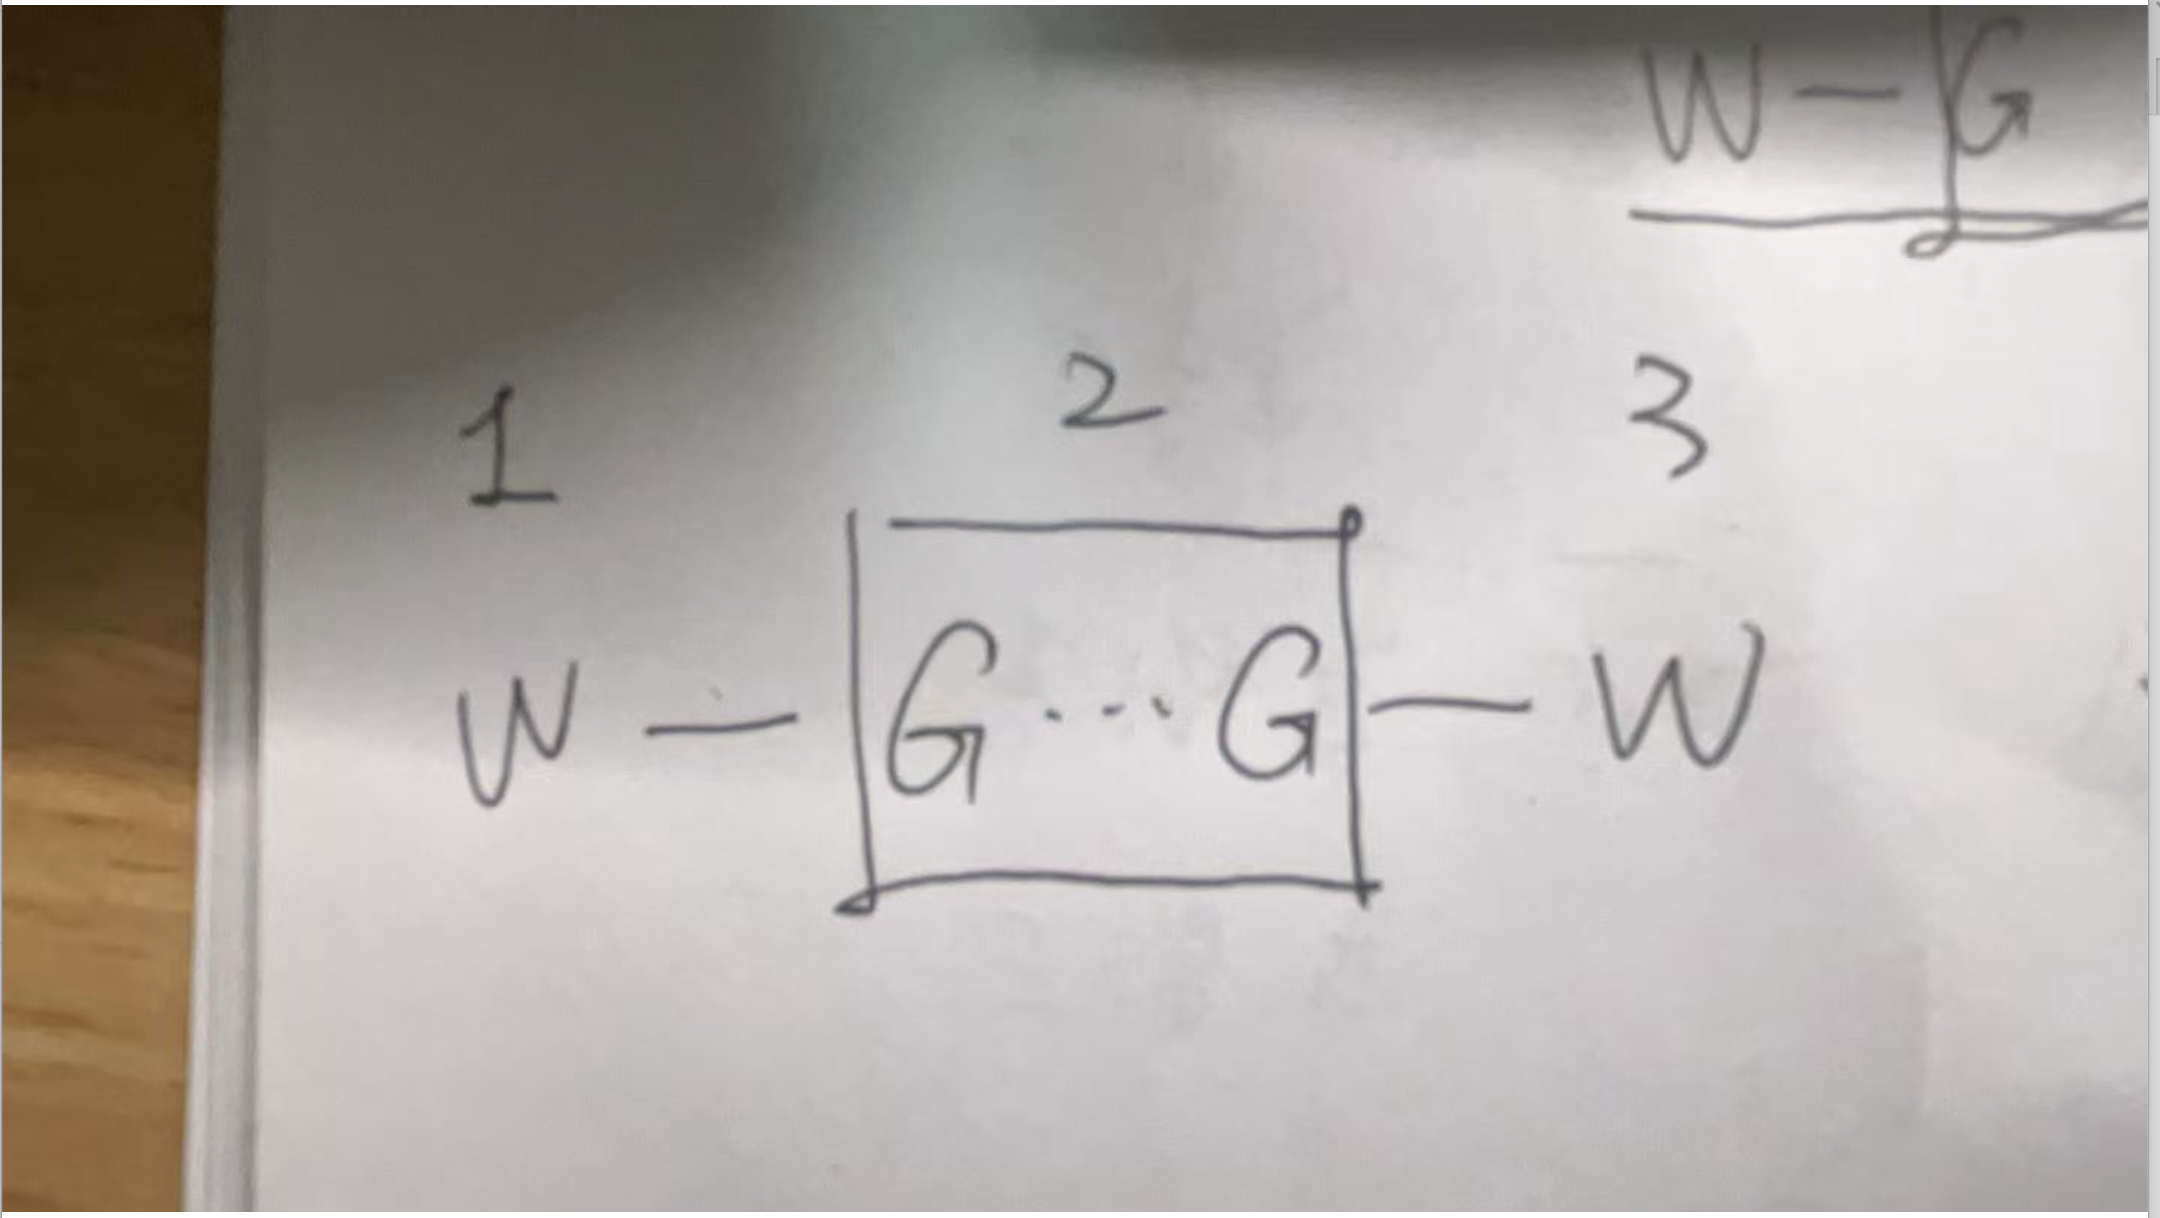 W - G
1 2 3
W - G ... G - W